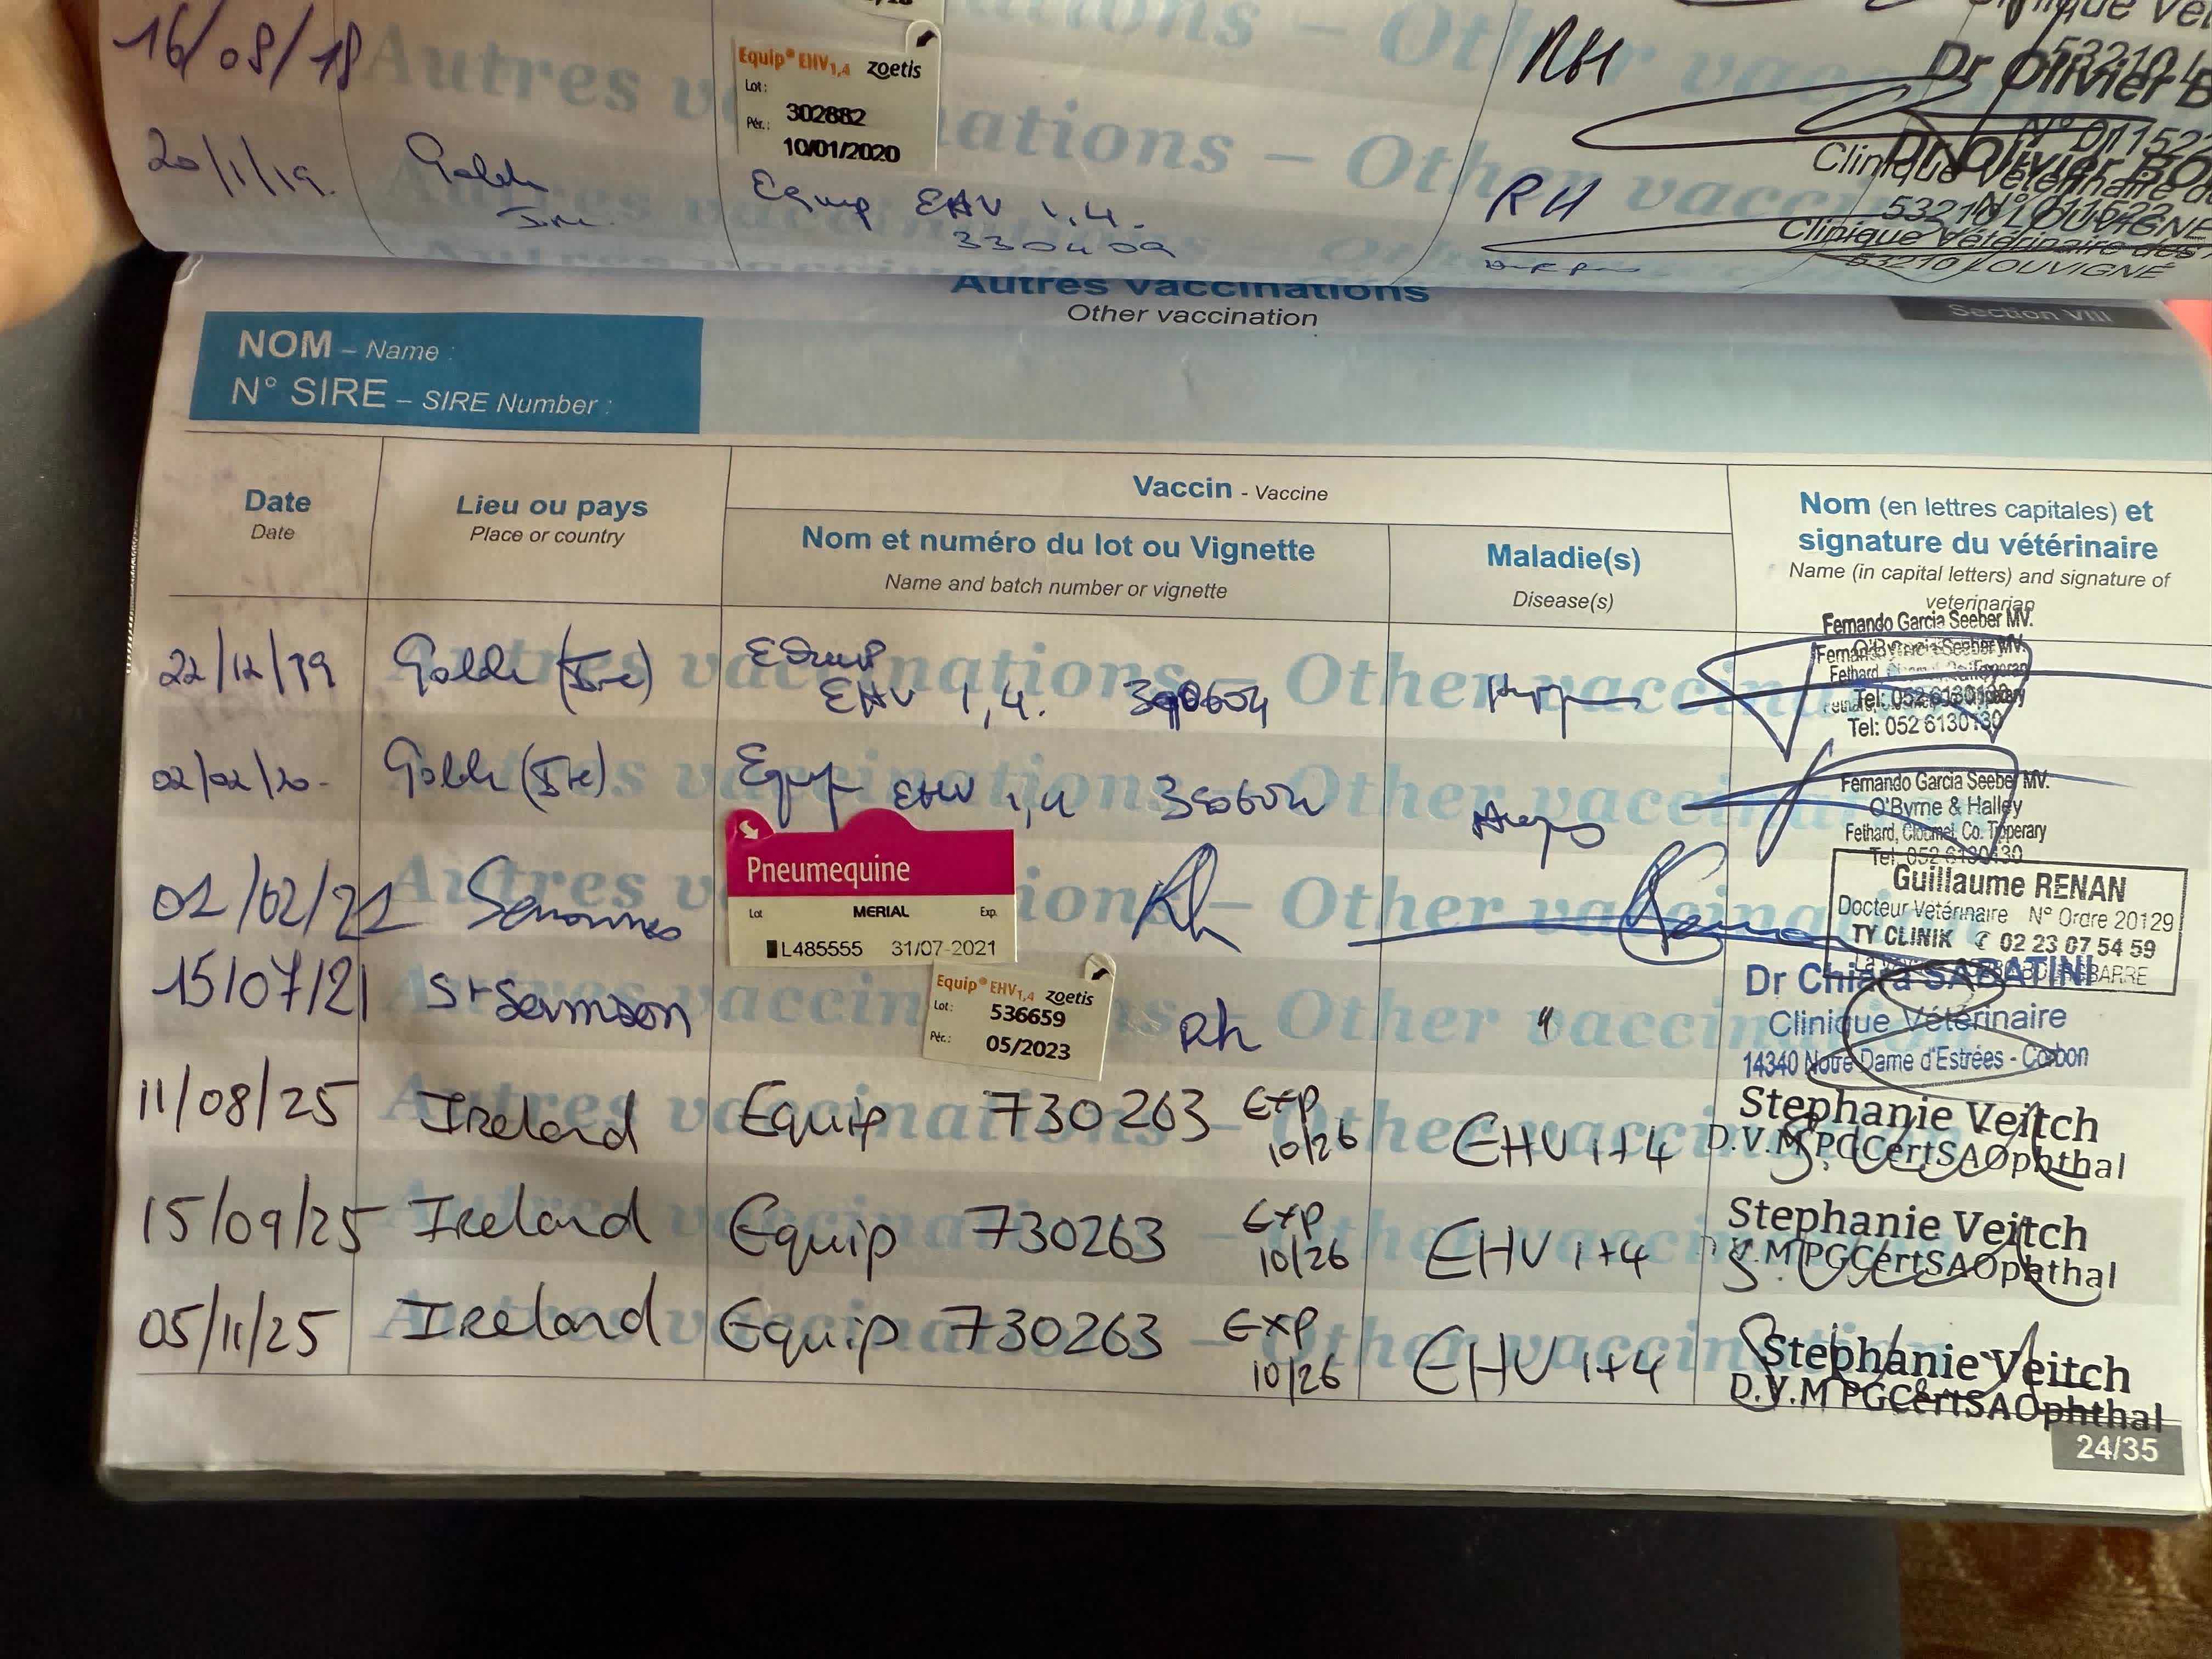 16/08/18
Equip® EHV1,4 zoetis
Lot :
302882
Pér. :
10/01/2020
RH
53210
Dr Olivier
N° 011522
Clinique Vétérinaire
20/1/19.
Equip EHV 1,4.
330409
RH
Dr Olivier
53210 LOUVIGNÉ
Clinique Vétérinaire des
53210 LOUVIGNÉ
Autres vaccinations
Other vaccination
Section VIII
NOM – Name :
N° SIRE – SIRE Number :
Date
Date
Lieu ou pays
Place or country
Vaccin - Vaccine
Nom et numéro du lot ou Vignette
Name and batch number or vignette
Maladie(s)
Disease(s)
Nom (en lettres capitales) et
signature du vétérinaire
Name (in capital letters) and signature of
veterinarian
22/12/19
(Ire)
Equip
EHV 1,4.
Fernando Garcia Seeber MV.
Tel: 052 6130130
02/02/20
(Ire)
Equip EHV 1,4
Fernando Garcia Seeber MV.
O'Byrne & Halley
Fethard, Clonmel, Co. Tipperary
Tel: 052 6130130
01/02/21
Senonnes
Pneumequine
Lot MERIAL Exp.
L485555 31/07-2021
Rh
Guillaume RENAN
Docteur Vétérinaire N° Ordre 20129
TY CLINIK ✆ 02 23 07 54 59
15/07/21
St Samson
Equip® EHV1,4 zoetis
Lot : 536659
Pér. : 05/2023
Rh
"
Dr Chiara SABATINI
Clinique Vétérinaire
14340 Notre Dame d'Estrées - Corbon
11/08/25 Ireland Equip 730263 Exp
10/26
EHV 1+4
Stephanie Veitch
D.V.M PGCertSAOphthal
15/09/25 Ireland Equip 730263 Exp
10/26
EHV 1+4
Stephanie Veitch
V.M PGCertSAOphthal
05/11/25 Ireland Equip 730263 Exp
10/26
EHV 1+4
Stephanie Veitch
D.V.M PGCertSAOphthal
24/35